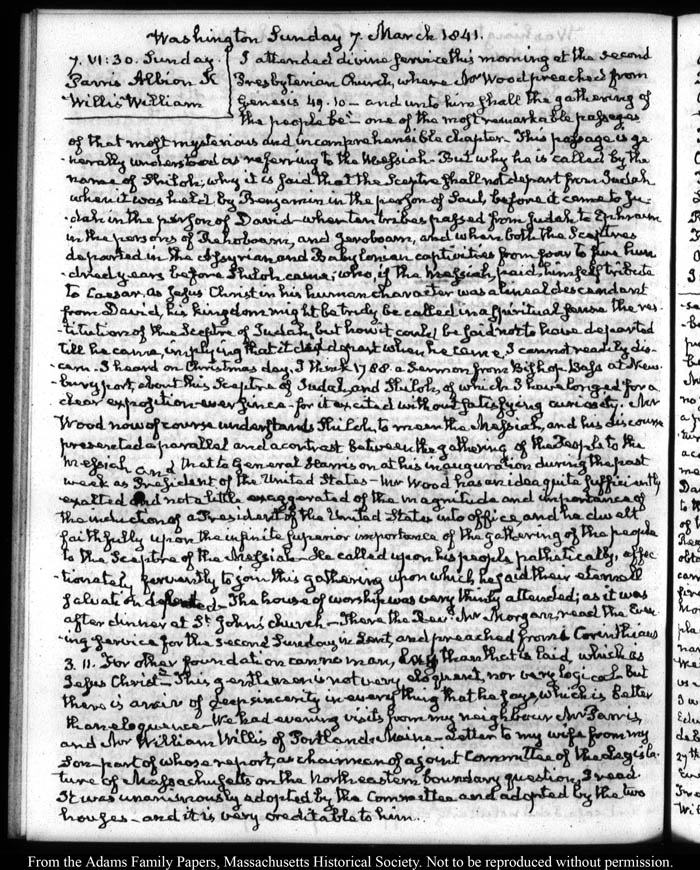 Washington Sunday 7. March 1841.
7. VI:30. Sunday.
Parris Albion K
Willis William
I attended divine service this morning at the second
Presbyterian Church, where Mr Wood preached from
Genesis 49.10 — and unto him shall the gathering of
the people be — one of the most remarkable passages
of that most mysterious and incomprehensible chapter. This passage is ge-
nerally understood as referring to the Messiah. But why he is called by the
name of Shiloh; why it is said that the Sceptre shall not depart from Judah
when it was held by Benjamin in the person of Saul, before it came to Ju-
dah in the person of David — when ten tribes passed from Judah to Ephraim
in the persons of Rehoboam, and Jeroboam, and when both the Sceptres
departed in the Assyrian and Babylonian captivities from four to five hun-
dred years before Shiloh came; who, if the Messiah, paid himself tribute
to Caesar. As Jesus Christ in his human character was a lineal descendant
from David, his kingdom might be truly be called in a spiritual sense the res-
titution of the Sceptre of Judah, but how it could be said not to have departed
till he came, implying that it did depart when he came, I cannot readily dis-
cern. I heard on Christmas day, I think 1788 a Sermon from Bishop Bass at New-
buryport, about this Sceptre of Judah, and Shiloh, of which I have longed for a
clear exposition ever since — for it excited without satisfying curiosity. Mr
Wood now of course understands Shiloh, to mean the Messiah, and his discourse
presented a parallel and a contrast between the gathering of the People to the
Messiah and that to General Harrison at his inauguration during the past
week as President of the United States — Mr Wood has an idea quite sufficiently
exalted and not a little exaggerated of the magnitude and importance of
the induction of a President of the United States into office, and he dwelt
faithfully upon the infinite superior importance of the gathering of the people
to the Sceptre of the Messiah — He called upon his people pathetically, affec-
tionately fervently to join this gathering upon which he said their eternal
salvation depended — The house of worship was very thinly attended; as it was
after dinner at St. John's church — There the Revd. Mr Morgan, read the Even-
ing service for the second Sunday in Lent, and preached from 1 Corinthians
3. 11. For other foundation can no man, lay than that is laid, which is
Jesus Christ — This gentleman is not very eloquent, nor very logical. But
there is an air of deep sincerity in every thing that he says, which is better
than eloquence — We had evening visits from my neighbour Mr Parris,
and Mr William Willis of Portland, Maine — Letter to my wife from my
Son — part of whose report, as chairman of a joint Committee of the Legisla-
ture of Massachusetts on the North eastern boundary question, I read.
It was unanimously adopted by the Committee and adopted by the two
houses — and it is very creditable to him.
From the Adams Family Papers, Massachusetts Historical Society. Not to be reproduced without permission.